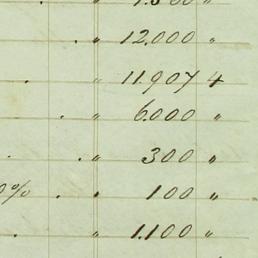 " 12.000 "
" 11.907 4
" 6.000 "
" 300 "
0% " 100 "
" 1.100 "